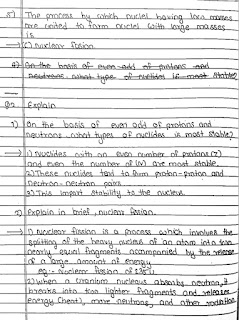 5) The process by which nuclei having low masses
are united to form nuclei with large masses
is
→ (c) Nuclear fusion.
6) On the basis of even-odd of protons and
neutrons what type of nuclides is most stable?
Q2 Explain
1) On the basis of even odd of protons and
neutrons, what types of nuclides is most stable?
→ 1) Nuclides with an even number of protons (Z)
and even the number of (N) are most stable.
2) These nuclides tend to form proton-proton and
neutron-neutron pairs
3) This impart stability to the nucleus.
2) Explain in brief, nuclear fission.
→ 1) Nuclear fission is a process which involves the
splitting of the heavy nucleus of an atom into two
nearly equal fragments accompanied by the release
of a large amount of energy
eg:- Nuclear fission of 235U.
2) When a uranium nucleus absorbs neutron, it
breaks into two lighter fragments and releases
energy (heat), more neutrons, and other radiation.